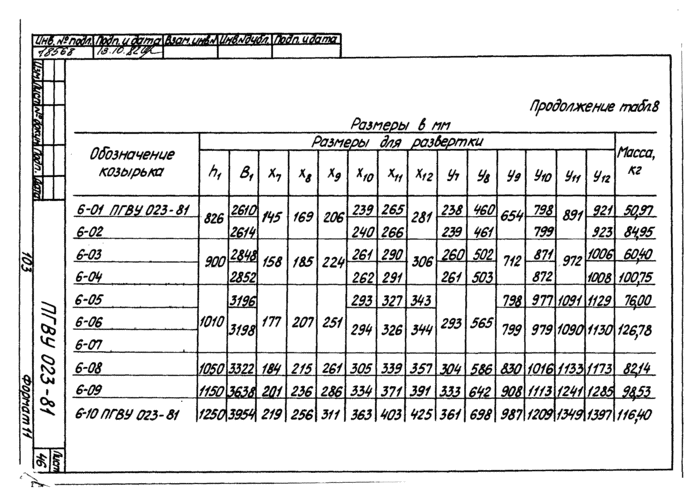 Инв. № подл. Подп. и дата Взам. инв.№ Инв.№ дубл. Подп. и дата
18568 13.10.82
Продолжение табл.8
Размеры в мм
Обозначение козырька Размеры для развертки Масса, кг
h₁ B₁ x₇ x₈ x₉ x₁₀ x₁₁ x₁₂ y₇ y₈ y₉ y₁₀ y₁₁ y₁₂
6-01 ПГВУ 023-81 826 2610 145 169 206 239 265 281 238 460 654 798 891 921 50,97
6-02 2614 240 266 239 461 799 923 84,95
6-03 900 2848 158 185 224 261 290 306 260 502 712 871 972 1006 60,40
6-04 2852 262 291 261 503 872 1008 100,75
6-05 3196 293 327 343 798 977 1091 1129 76,00
6-06 1010 3198 177 207 251 294 326 344 293 565 799 979 1090 1130 126,78
6-07
6-08 1050 3322 184 215 261 305 339 357 304 586 830 1016 1133 1173 82,14
6-09 1150 3638 201 236 286 334 371 391 333 642 908 1113 1241 1285 98,53
6-10 ПГВУ 023-81 1250 3954 219 256 311 363 403 425 361 698 987 1209 1349 1397 116,40
Изм. Лист № докум. Подп. Дата
103
ПГВУ 023-81
Формат 11
Лист
46